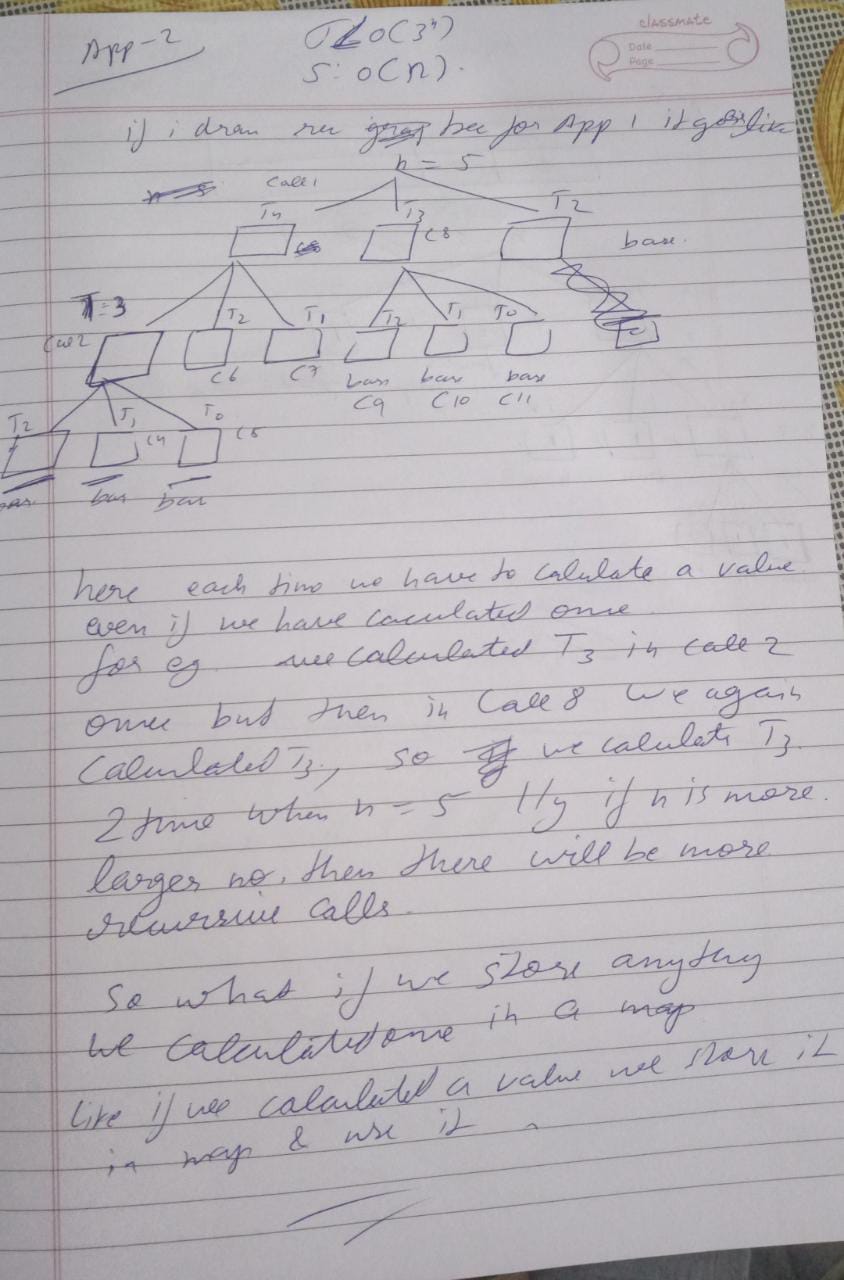 classmate
Date
Page
App-2
T: O(3ⁿ)
S: O(n).
if i draw rec tree for App 1 it goes like
n = 5
Call 1
T4 T3 T2
C8 base.
T=3
T2 T1 T2 T1 T0
Call 2
C6 C7 base base base
C9 C10 C11
T2 T1 T0
C4 C5
bas. bas bas
here each time we have to calulate a value
even if we have caculated once
for eg. we calculated T3 in call 2
once but then in Call 8 we again
Calculated T3, so we calculate T3
2 time when n = 5 lly if n is more.
larger no. then there will be more
recursive calls.
So what if we store anything
we calculated once in a map
like if we calculated a value we store it
in map & use it